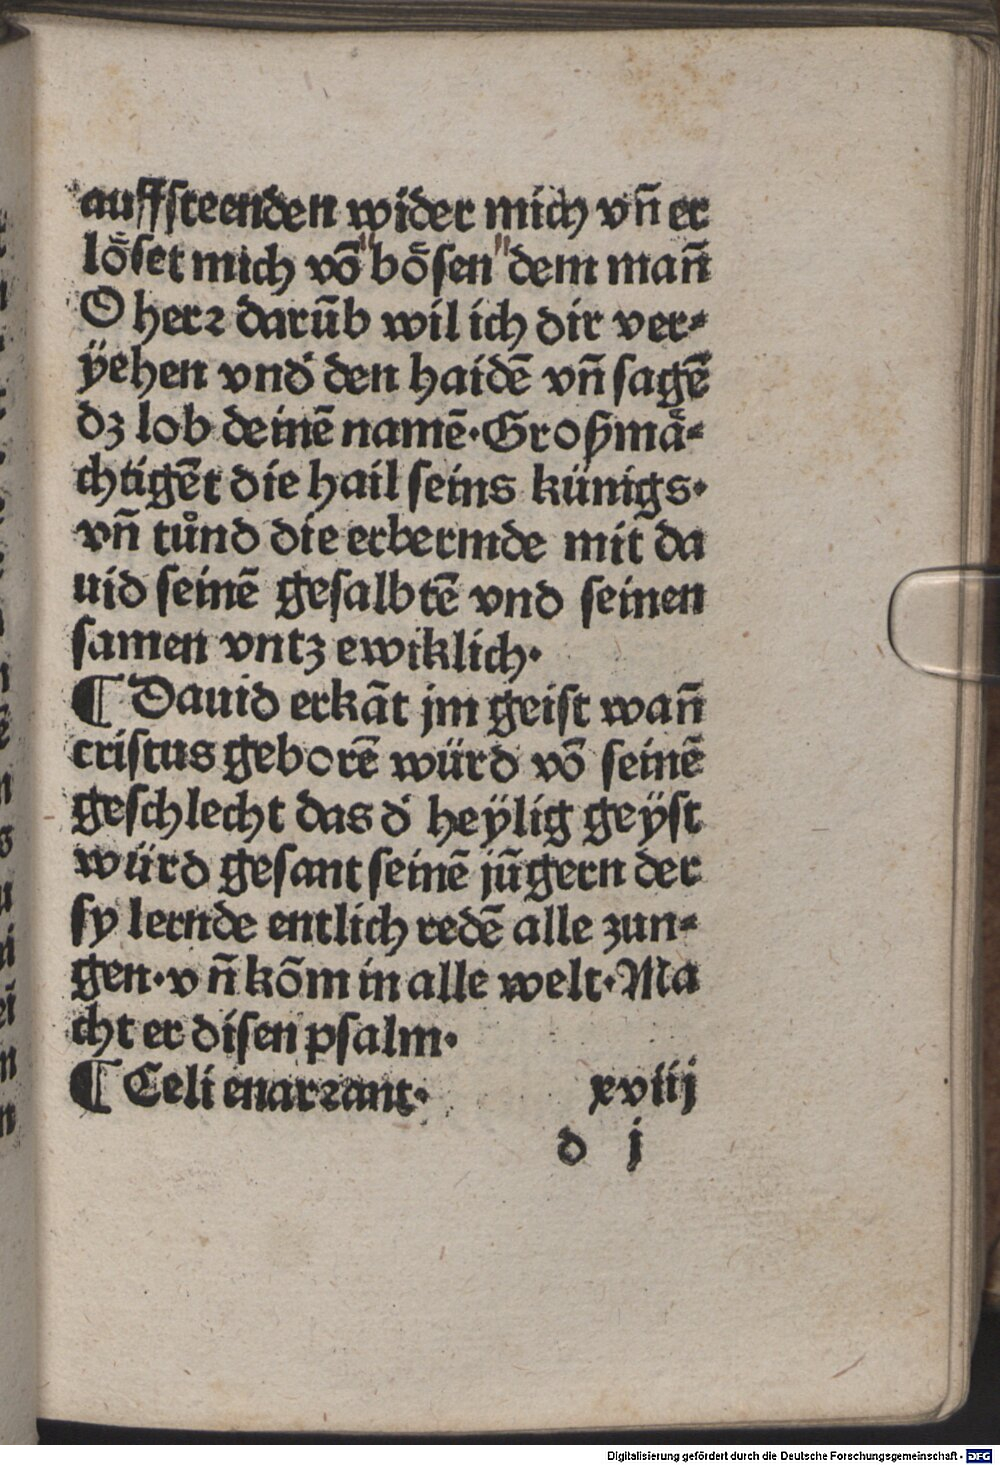 auffſteenden wider mich vñ er
löſet mich võ "böſen "dem man̄
O herꝛ darūb wil ich dir ver⸗
ÿehen vnd den haidē vñ ſagē
dꝫ lob deinē namē·Großmä⸗
chtigēt die hail ſeins künigs·
vñ tůnd die erbermde mit da
uid ſeinē geſalbtē vnd ſeinen
ſamen vntz ewiklich·
¶ Dauid erkāt jm geiſt wan̄
criſtus geborē würd võ ſeinē
geſchlecht das d' heÿlig geÿſt
würd geſant ſeinē jūgern der
ſy lernde entlich redē alle zun⸗
gen·vñ kõm in alle welt·Ma
cht er diſen pſalm·
¶ Celi enarꝛant· xviij
d j
Digitalisierung gefördert durch die Deutsche Forschungsgemeinschaft - DFG